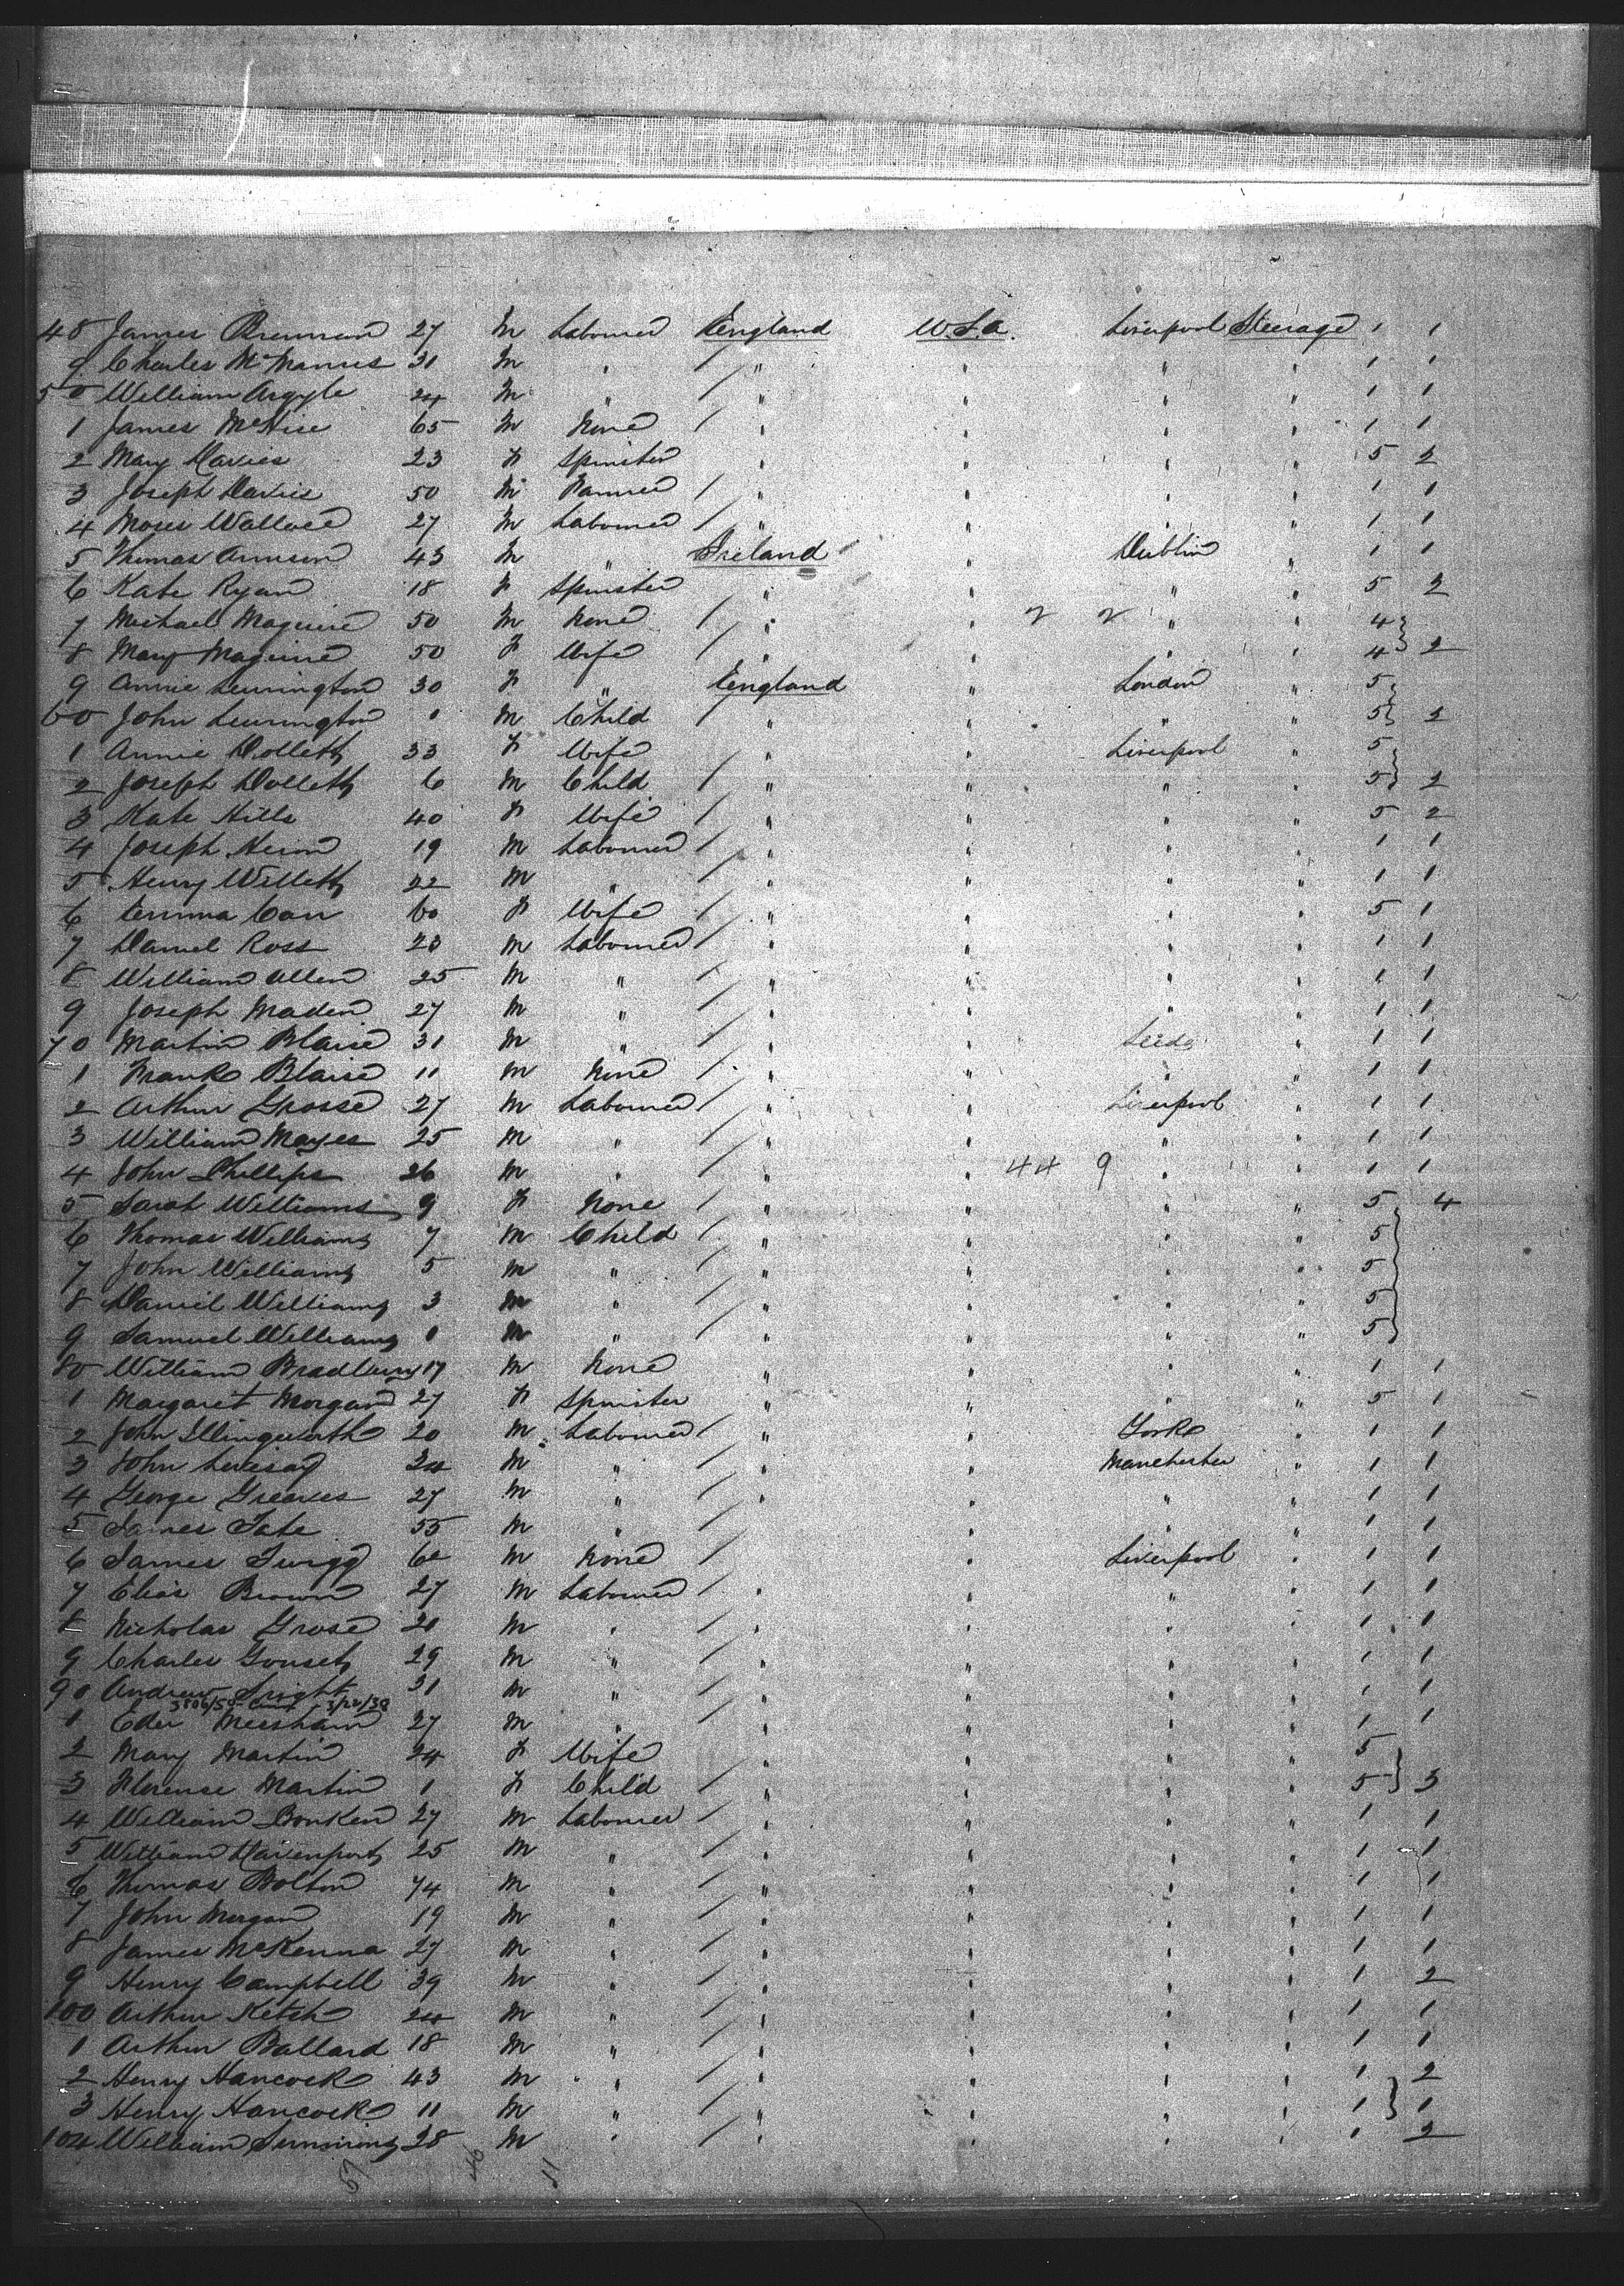 48 James Brennan 27 M Labourer England U.S.A. Liverpool Steerage 1 1
9 Charles McManus 31 M " / " " " " 1 1
50 William Argyle 24 M " / " " " " 1 1
1 James 65 M None / " " " " 1 1
2 Mary Davies 23 F Spinster " " " " 5 2
3 Joseph Davies 50 M / " " " " 1 1
4 Moses Wallace 27 M Labourer / " " " " 1 1
5 Thomas 43 M " Ireland " Dublin " 1 1
6 Kate Ryan 18 F Spinster " " " " 5 2
7 Michael Maguire 50 M None / " " 2 2 " " 4
8 Mary Maguire 50 F Wife / " " " " 4 2
9 Annie 30 F " England " London " 5
60 John M Child / " " " " 5 2
1 Annie Dollett 33 F Wife / " " Liverpool " 5
2 Joseph Dollett 6 M Child / " " " " 5 2
3 Kate Hills 40 F Wife / " " " " 5 2
4 Joseph 19 M Labourer / " " " " 1 1
5 Henry Willett 22 M " / " " " " 1 1
6 Emma Carr 60 F Wife / " " " " 5 1
7 Daniel Ross 23 M Labourer / " " " " 1 1
8 William Allen 25 M " / " " " " 1 1
9 Joseph Maden 27 M " / " " " " 1 1
70 Martin Blaise 31 M " / " " Leeds " 1 1
1 Frank Blaise 11 M None / " " " " 1 1
2 Arthur Grosse 27 M Labourer / " " Liverpool " 1 1
3 William Mayes 25 M " / " " " " 1 1
4 John Phillips 26 M " / " " 44 9 " " 1 1
5 Sarah Williams 9 F None / " " " " 5 4
6 Thomas Williams 7 M Child / " " " " 5
7 John Williams 5 M " / " " " " 5
8 Daniel Williams 3 M " / " " " " 5
9 Samuel Williams M " / " " " " 5
80 William Bradburn 17 M None " " " " 1 1
1 Margaret Morgan 27 F Spinster " " " " 5 1
2 John Illingworth 20 M Labourer / " " York " 1 1
3 John 24 M " / " " Manchester " 1 1
4 George Greaves 27 M " / " " " " 1 1
5 James Tate 55 M " / " " " 1 1
6 James Twigg M None / " Liverpool " 1 1
7 Elias Brown 27 M Labourer / " " " " 1 1
8 Nicholas Grose 20 M " / " " " " 1 1
9 Charles 29 M " / " " " " 1 1
90 Andrew 31 M " / " " " " 1 1
1 Eder Messham 27 M " / " " " " 1 1
2 Mary Martin 24 F Wife / " " " " 5
3 Florence Martin 1 F Child / " " " " 5 3
4 William 27 M Labourer / " " " " 1 1
5 William Davenport 25 M " / " " " " 1 1
6 Thomas Bolton 74 M " / " " " " 1 1
7 John Morgan 19 M " / " " " " 1 1
8 James McKenna 27 M " / " " " " 1 1
9 Henry Campbell 39 M " / " " " " 1 2
100 Arthur Ketch 24 M " / " " " " 1 1
1 Arthur Ballard 18 M " / " " " " 1 1
2 Henry Hancock 43 M " / " " " " 1 2
3 Henry Hancock 11 M " / " " " " 1 1
104 William 28 M " / " " " " 1 2
57 46 11